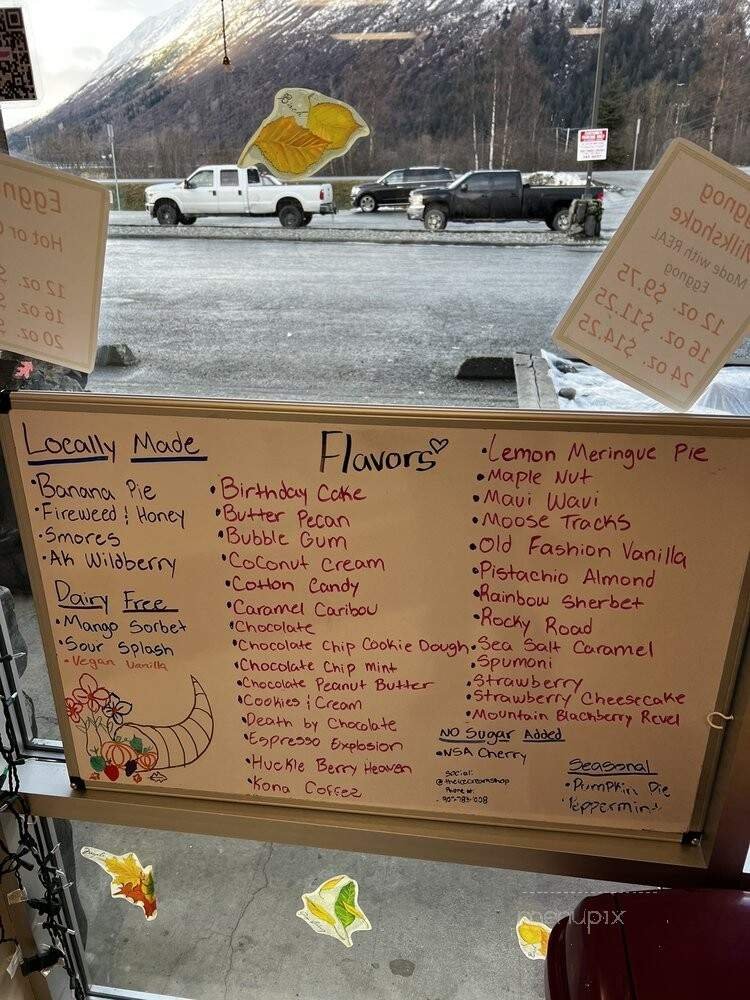 Eggn
Hot or
12 oz. $
16 oz. $
20 oz. $
ggnog
Milkshake
Made with REAL
Eggnog
12 oz. $9.75
16 oz. $11.25
24 oz. $14.25
Locally Made
•Banana Pie
•Fireweed & Honey
•Smores
•AK Wildberry
Dairy Free
•Mango Sorbet
•Sour Splash
•Vegan Vanilla
Flavors
•Birthday Cake
•Butter Pecan
•Bubble Gum
•Coconut Cream
•Cotton Candy
•Caramel Caribou
•Chocolate
•Chocolate Chip Cookie Dough
•Chocolate Chip mint
•Chocolate Peanut Butter
•Cookies & Cream
•Death by Chocolate
•Espresso Explosion
•Huckle Berry Heaven
•Kona Coffee
•Lemon Meringue Pie
•Maple Nut
•Maui Waui
•Moose Tracks
•Old Fashion Vanilla
•Pistachio Almond
•Rainbow Sherbet
•Rocky Road
•Sea Salt Caramel
•Spumoni
•Strawberry
•Strawberry Cheesecake
•Mountain Blackberry Revel
NO Sugar Added
•NSA Cherry
Social:
@theicecreamshop
Phone #:
Seasonal
•Pumpkin Pie
•Peppermint
menupix